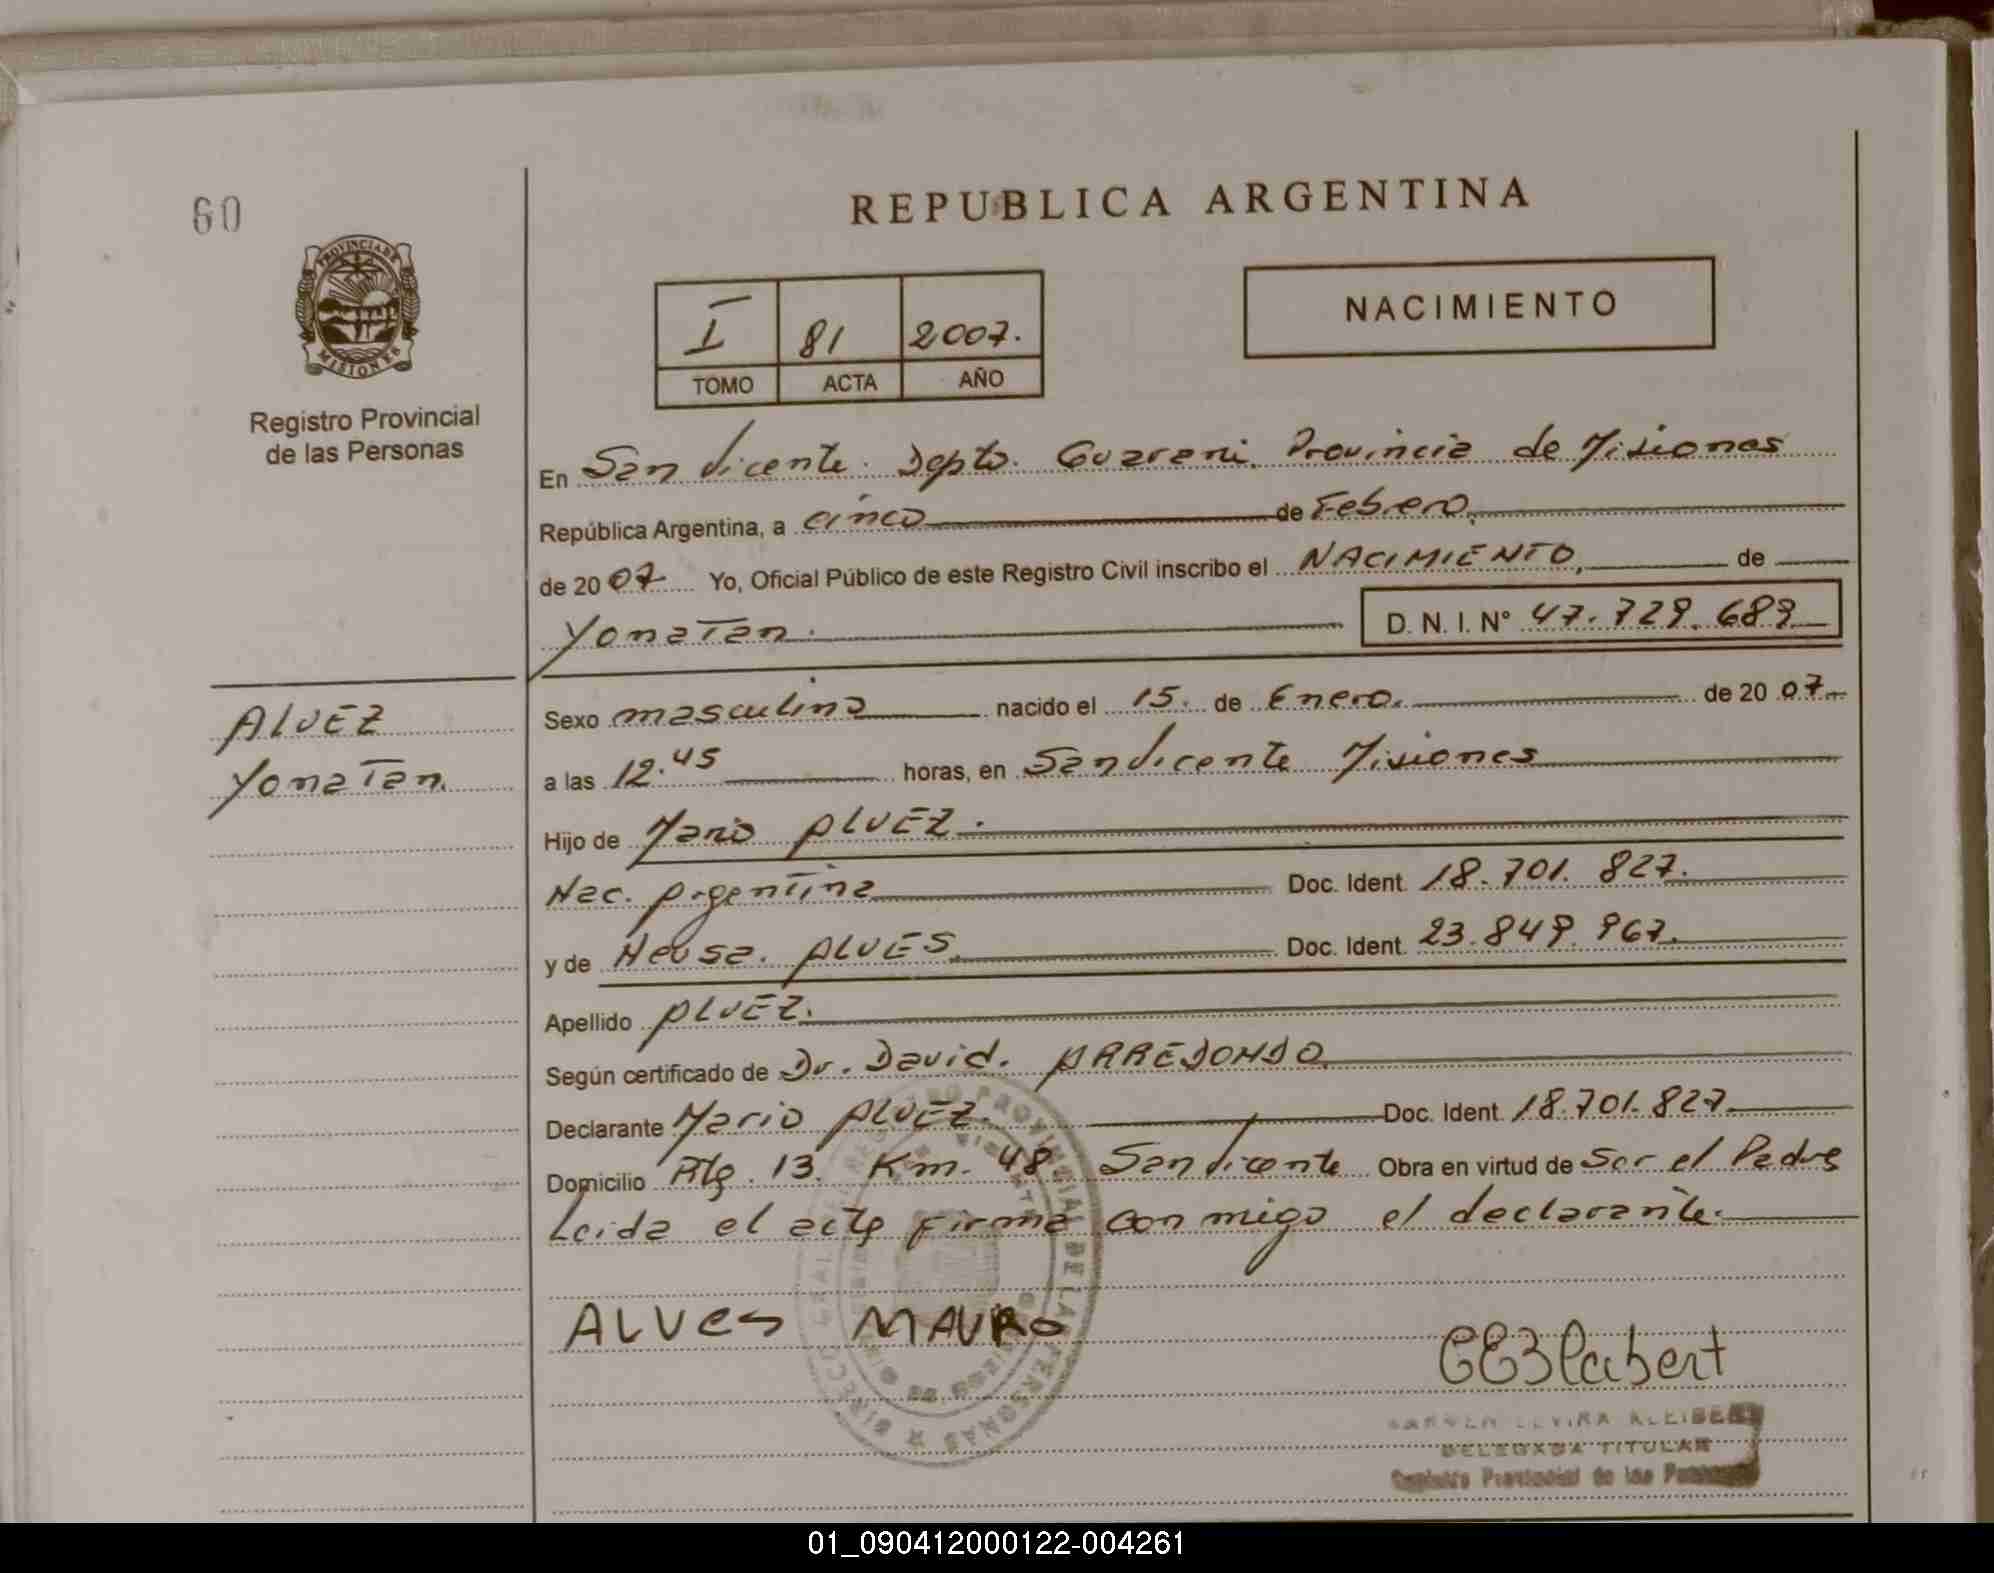 60
REPUBLICA ARGENTINA
PROVINCIA DE
MISIONES
Registro Provincial
de las Personas
I 81 2007.
TOMO ACTA AÑO
NACIMIENTO
En San Vicente. Depto. Guarani. Provincia de Misiones
República Argentina, a cinco de Febrero,
de 2007 Yo, Oficial Público de este Registro Civil inscribo el NACIMIENTO, de
Yonatan. D. N. I. Nº 47.729.689
ALVEZ
Yonatan.
Sexo masculino nacido el 15. de Enero. de 2007
a las 12.45 horas, en San Vicente Misiones
Hijo de Mario ALVEZ.
Nac. Argentina Doc. Ident. 18.701.827.
y de Neusa. ALVES. Doc. Ident. 23.849.967.
Apellido ALVEZ.
Según certificado de Dr. David. ARREDONDO
Declarante Mario ALVEZ. Doc. Ident. 18.701.827
Domicilio Rta. 13. Km. 48 San Vicente Obra en virtud de Ser el Padre
Leida el acta firma con migo el declarante.
ALVES MAURO
DELEGADA TITULAR
Registro Provincial de las Personas
01_090412000122-004261